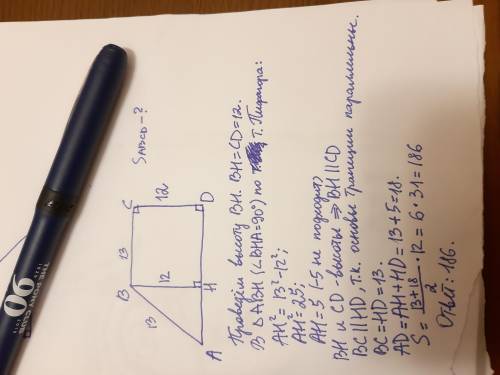 S ABCD - ?
B
13
C
13
12
12
A
H
D
Проведём высоту BH. BH=CD=12.
В △ABH (∠BHA=90°) по т. Пифагора:
AH²=13²-12²;
AH²=25;
AH=5 (-5 не подходит)
BH и CD - высоты ⇒ BH||CD
BC||HD т.к. основы трапеции параллельны.
BC=HD=13.
AD=AH+HD=13+5=18.
S= (13+18)/2 · 12 = 6 · 31 = 186
Ответ: 186.
90